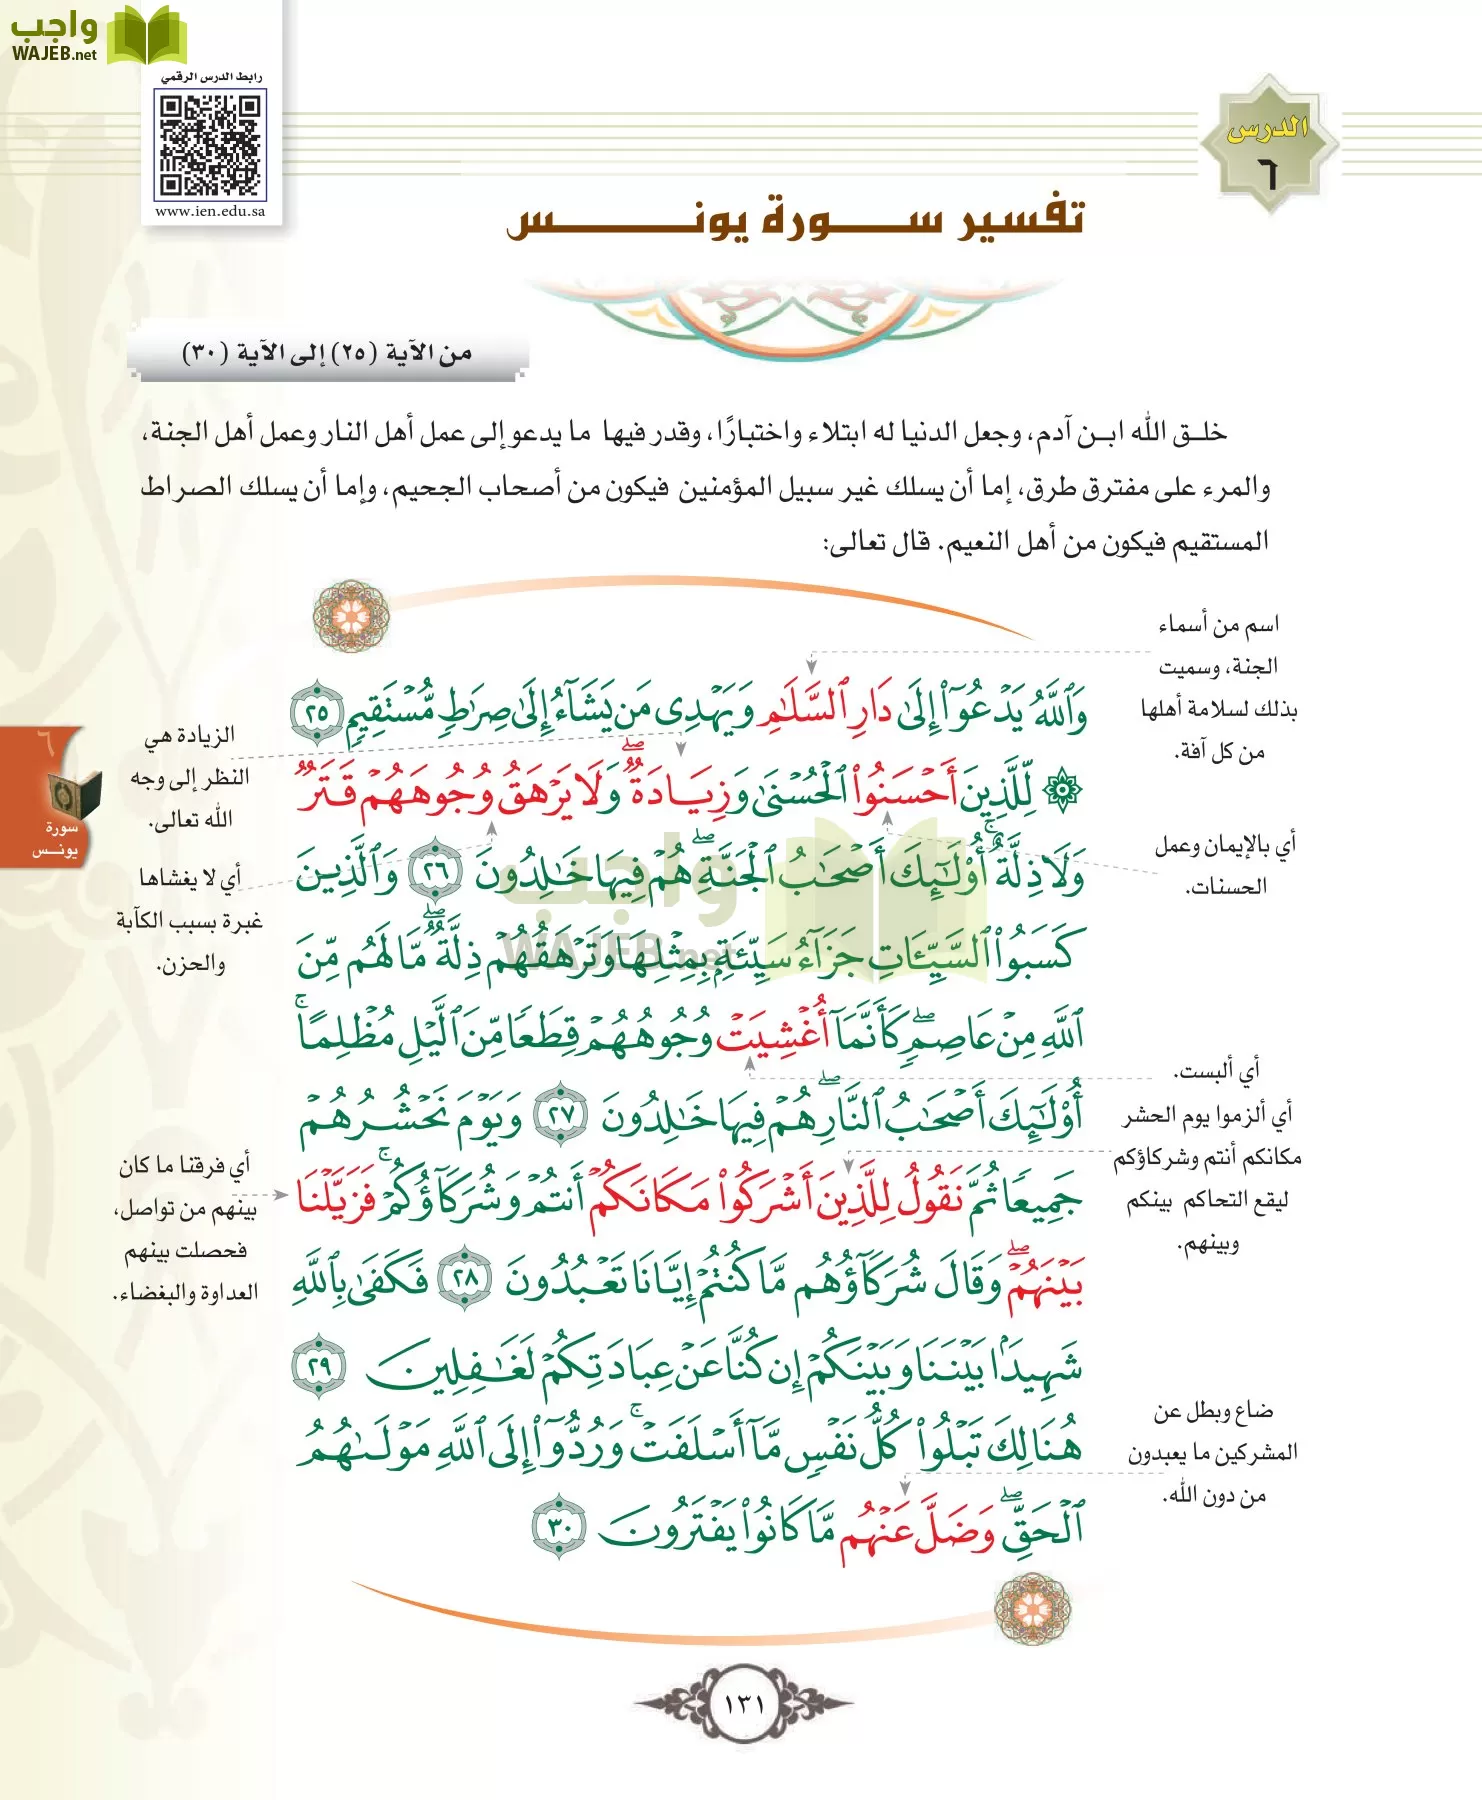 واجب
WAJEB.net
رابط الدرس الرقمي
www.ien.edu.sa
الدرس
٦
تفسير سورة يونس
من الآية (٢٥) إلى الآية (٣٠)
خلق الله ابن آدم، وجعل الدنيا له ابتلاء واختبارًا، وقدر فيها ما يدعو إلى عمل أهل النار وعمل أهل الجنة،
والمرء على مفترق طرق، إما أن يسلك غير سبيل المؤمنين فيكون من أصحاب الجحيم، وإما أن يسلك الصراط
المستقيم فيكون من أهل النعيم. قال تعالى:
اسم من أسماء
الجنة، وسميت
بذلك لسلامة أهلها
من كل آفة.
أي بالإيمان وعمل
الحسنات.
أي ألبست.
أي ألزموا يوم الحشر
مكانكم أنتم وشركاؤكم
ليقع التحاكم بينكم
وبينهم.
ضاع وبطل عن
المشركين ما يعبدون
من دون الله.
وَٱللَّهُ يَدْعُوٓا۟ إِلَىٰ دَارِ ٱلسَّلَٰمِ وَيَهْدِى مَن يَشَآءُ إِلَىٰ صِرَٰطٍ مُّسْتَقِيمٍ ٢٥
۞ لِّلَّذِينَ أَحْسَنُوا۟ ٱلْحُسْنَىٰ وَزِيَادَةٌ ۖ وَلَا يَرْهَقُ وُجُوهَهُمْ قَتَرٌ
وَلَا ذِلَّةٌ ۚ أُو۟لَٰٓئِكَ أَصْحَٰبُ ٱلْجَنَّةِ ۖ هُمْ فِيهَا خَٰلِدُونَ ٢٦ وَٱلَّذِينَ
كَسَبُوا۟ ٱلسَّيِّـَٔاتِ جَزَآءُ سَيِّئَةٍۭ بِمِثْلِهَا وَتَرْهَقُهُمْ ذِلَّةٌ ۖ مَّا لَهُم مِّنَ
ٱللَّهِ مِنْ عَاصِمٍ ۖ كَأَنَّمَآ أُغْشِيَتْ وُجُوهُهُمْ قِطَعًا مِّنَ ٱلَّيْلِ مُظْلِمًا ۚ
أُو۟لَٰٓئِكَ أَصْحَٰبُ ٱلنَّارِ ۖ هُمْ فِيهَا خَٰلِدُونَ ٢٧ وَيَوْمَ نَحْشُرُهُمْ
جَمِيعًا ثُمَّ نَقُولُ لِلَّذِينَ أَشْرَكُوا۟ مَكَانَكُمْ أَنتُمْ وَشُرَكَآؤُكُمْ ۚ فَزَيَّلْنَا
بَيْنَهُمْ ۖ وَقَالَ شُرَكَآؤُهُم مَّا كُنتُمْ إِيَّانَا تَعْبُدُونَ ٢٨ فَكَفَىٰ بِٱللَّهِ
شَهِيدًۢا بَيْنَنَا وَبَيْنَكُمْ إِن كُنَّا عَنْ عِبَادَتِكُمْ لَغَٰفِلِينَ ٢٩
هُنَالِكَ تَبْلُوا۟ كُلُّ نَفْسٍ مَّآ أَسْلَفَتْ ۚ وَرُدُّوٓا۟ إِلَى ٱللَّهِ مَوْلَىٰهُمُ
ٱلْحَقِّ ۖ وَضَلَّ عَنْهُم مَّا كَانُوا۟ يَفْتَرُونَ ٣٠
واجب
WAJEB.net
الزيادة هي
النظر إلى وجه
الله تعالى.
أي لا يغشاها
غبرة بسبب الكآبة
والحزن.
أي فرقنا ما كان
بينهم من تواصل،
فحصلت بينهم
العداوة والبغضاء.
٦
سورة
يونس
١٣١